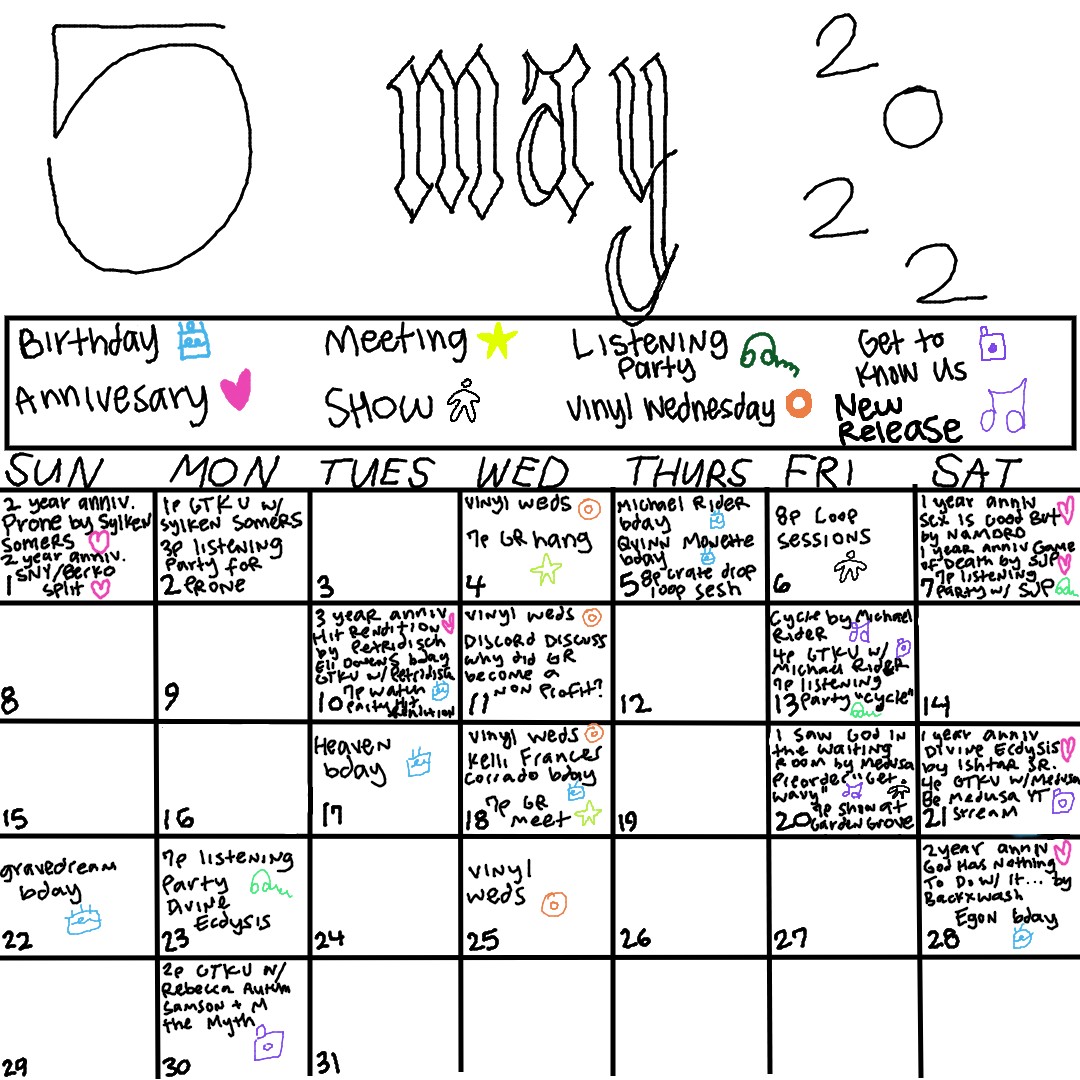 5 may 2022
Birthday
Meeting
Listening
Party
Get to
Know Us
Annivesary
SHOW
Vinyl Wednesday
New
Release
SUN MON TUES WED THURS FRI SAT
2 year anniv.
Prone by Sylken
Somers
2 year anniv.
SNY/Berko
1 split
1p GTKU w/
Sylken Somers
3p listening
Party for
2 PRONE
3
Vinyl weds
7p GR hang
4
Michael Rider
bday
Quinn Monette
bday
5 8p crate drop
loop sesh
8p Loop
SESSIONS
6
1 year anniv
Sex is Good But
by NAMDRD
1 year anniv Game
of Death by SJP
7p listening
7 Party w/ SJP
8
9
3 year anniv
Hit Rendition
by Petridisch
Eli Owens bday
GTKU w/ Petridisch
7p watch
10 Party Hit
Rendition
Vinyl weds
Discord Discuss
why did GR
become a
11 NON Profit?
12
Cycle by Michael
Rider
4p GTKU w/
Michael Rider
7p listening
13 Party "cycle"
14
15
16
Heaven
bday
17
Vinyl weds
Kelli Frances
Corrado bday
7p GR
18 meet
19
I Saw God in
the Waiting
Room by Medusa
Preorder "Get
wavy"
9p show at
20 Garden Grove
1 year anniv
Divine Ecdysis
by Ishtar Sr.
4p GTKU w/Medusa
8p Medusa YT
21 stream
gravedream
bday
22
7p listening
Party
Divine
23 Ecdysis
24
Vinyl
weds
25
26
27
2 year anniv
God Has Nothing
To Do W/ It... by
Backxwash
Egon bday
28
29
2p GTKU w/
Rebecca Autum
Samson + M
the Myth
30
31